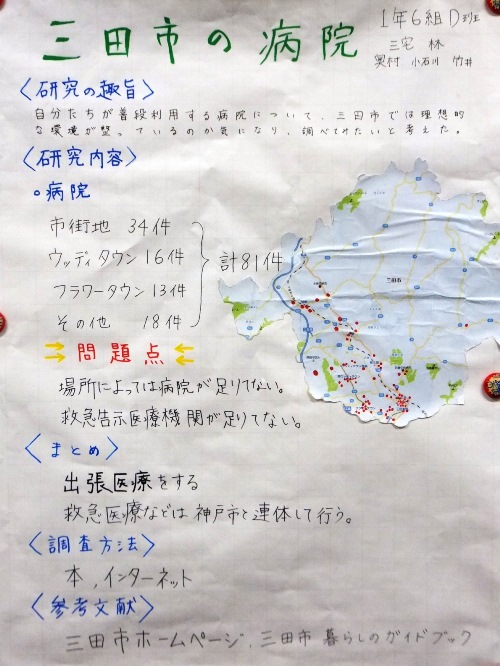 三田市の病院
1年6組D班
三宅 林
奥村 小石川 竹井
〈研究の趣旨〉
自分たちが普段利用する病院について、三田市では理想的
な環境が整っているのか気になり、調べてみたいと考えた。
〈研究内容〉
○病院
市街地 34件
ウッディタウン 16件
フラワータウン 13件
その他 18件
計81件
三田市
⇉ 問題点 ⇇
場所によっては病院が足りてない。
救急告示医療機関が足りてない。
〈まとめ〉
出張医療をする
救急医療などは神戸市と連体して行う。
〈調査方法〉
本，インターネット
〈参考文献〉
三田市ホームページ，三田市 暮らしのガイドブック